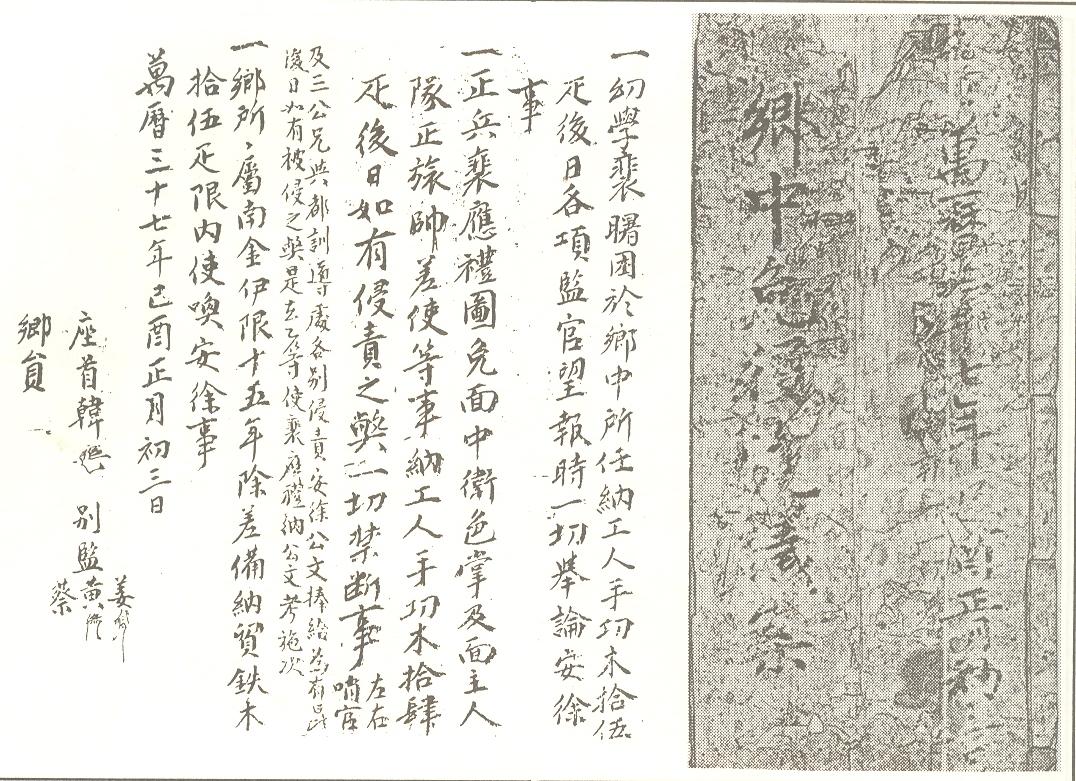 萬曆三十七年 正月初三
鄉中 完議案
一幼學裵曙困於鄉中所任納工人手功木拾伍
疋後日各項監官望報時一切擧論安徐
事
一正兵裵應禮圖免面中衛色掌及面主人
隊正旅帥差使等事納工人手功木拾肆
疋後日如有侵責之弊一切禁断事 左右哨官
及三公兄與都訓導處各別侵責安徐公文捧給爲有昆
後日如有被侵之弊是去乙等使裵應禮納公文考施次
一鄉所屬南金伊限十五年除差備納貿鉄木
拾伍疋限内使喚安徐事
萬曆三十七年己酉正月初三日
座首韓 別監 姜 黃 蔡
鄉員